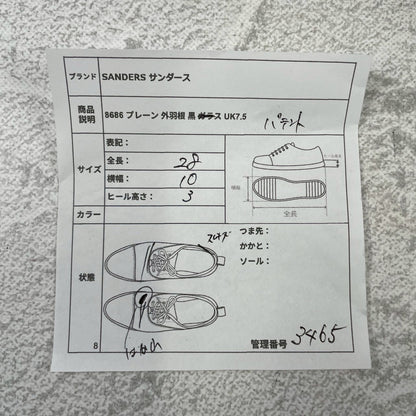 ブランド SANDERS サンダース
商品説明 8686 プレーン 外羽根 黒 ガラス UK7.5 パテント
サイズ
表記：
全長： 28
横幅： 10
ヒール高さ： 3
ヒール高さ
横幅
全長
カラー
状態
つま先：
かかと：
ソール：
8
管理番号 3465